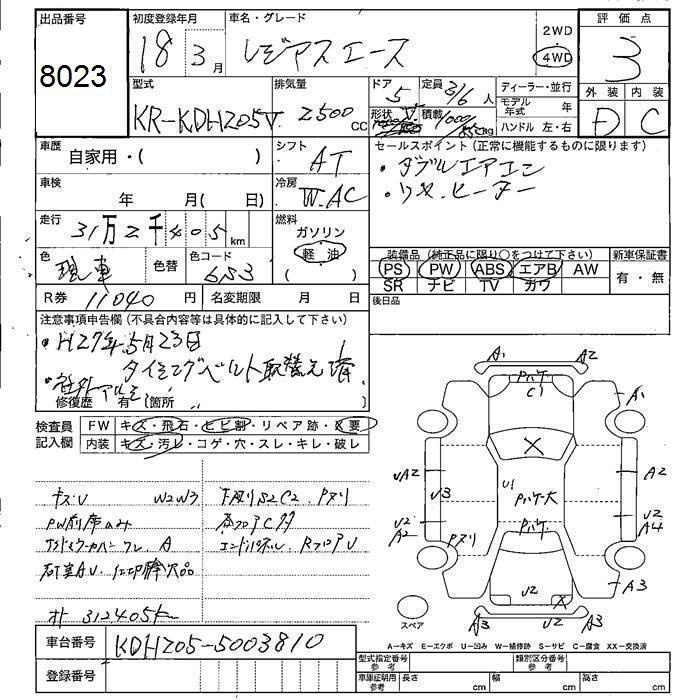 出品番号 8023
初度登録年月 18年3月
車名・グレード レジアスエース
2WD
4WD
評価点 3
外装 内装
D C
型式 KR-KDH205V
排気量 2500 CC
ドア 5
定員 3/6 人
形状 V
積載 1000/ kg
ディーラー・並行
モデル年式 年
ハンドル 左・右
車歴 自家用・( )
シフト AT
セールスポイント(正常に機能するものに限ります)
・ダブルエアコン
・リヤヒーター
車検 年 月( 日)
冷房 W.AC
走行 31万2千405km
燃料 ガソリン
軽油
( )
色 現車
色替
色コード 6S3
装備品(純正品に限り○をつけて下さい)
PS PW ABS エアB AW
SR ナビ TV カワ
新車保証書
有・無
R券 11040 円
名変期限 月 日
後日品
注意事項申告欄(不具合内容等は具体的に記入して下さい)
・H27年5月23日
タイミングベルト取替え済
・社外アルミ
修復歴 有(箇所 )
検査員記入欄
FW キズ・飛石・ヒビ割・リペア跡・X要
内装 キズ・汚レ・コゲ・穴・スレ・キレ・破レ
キズU W2W3
下廻りS2C2. Pヌリ
A1 A2
Pハゲ
C1
A1
UA2
U3
U1
Pハゲ大
A2
U2
A2
Pヌリ
Pハゲ
U2
A4
U2
A3
A3 U2 A3
スペア
オト 312405km
A－キズ E－エクボ U－凹み W－補修跡 S－サビ C－腐食 XX－交換済
車台番号 KDH205-5003810
登録番号
型式指定番号 参考
類別区分番号 参考
車庫証明用 参考
長さ cm
幅 cm
高さ cm